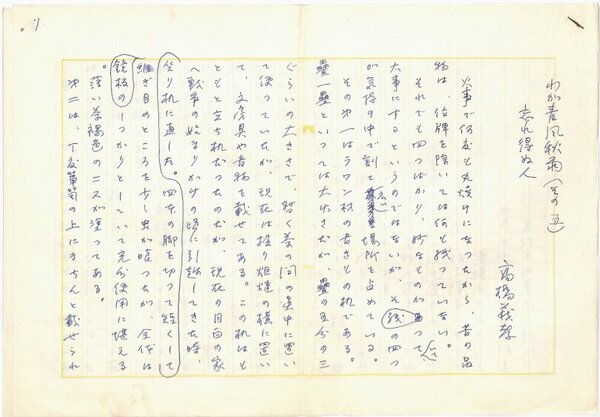 わが春風秋雨（その五）
忘れ得ぬ人
高橋義孝
火事で何度も丸焼けになつたから、昔の品
物は、位牌を除いては何も残つていない。
それでも四つばかり、妙なものがあつて、
大事にするというのではないが、その四つ
が気持の中で割と広い場所を占めている。
その第一はラワン材の書きもの机である。
畳一畳といつては大げさだが、畳の五分の三
ぐらいの大きさで、暫く茶の間の真中に置い
て使つていたが、現在は掘り炬燵の横に置い
て、文房具や書物を載せてある。この机はも
ともと立ち机だつたのだが、現在の目白の家
へ戦争の始まりかけの頃に引越してきた時、
坐り机に直した。四本の脚を切つて短くして
継ぎ目のところを少し虫が喰つたが、全体は
しつかりとしていて充分使用に堪える
。薄い茶褐色のニスが塗つてある。
第二は、丁度箪笥の上にきちんと載せられ